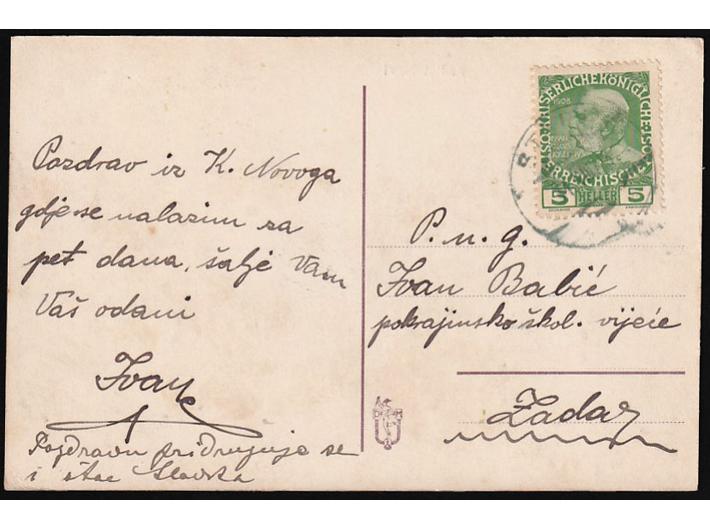 Pozdrav iz K. Novoga
gdje se nalazim za
pet dana, šalje Vam
Vaš odani
Ivan
Pozdravu pridružuje se
i otac Slavka
KAISERLICHE KÖNIGLICHE
1908
ÖSTERREICHISCHE
5 HELLER 5
P. n. g.
Ivan Babić
pokrajinsko škol. vijeće
Zadar